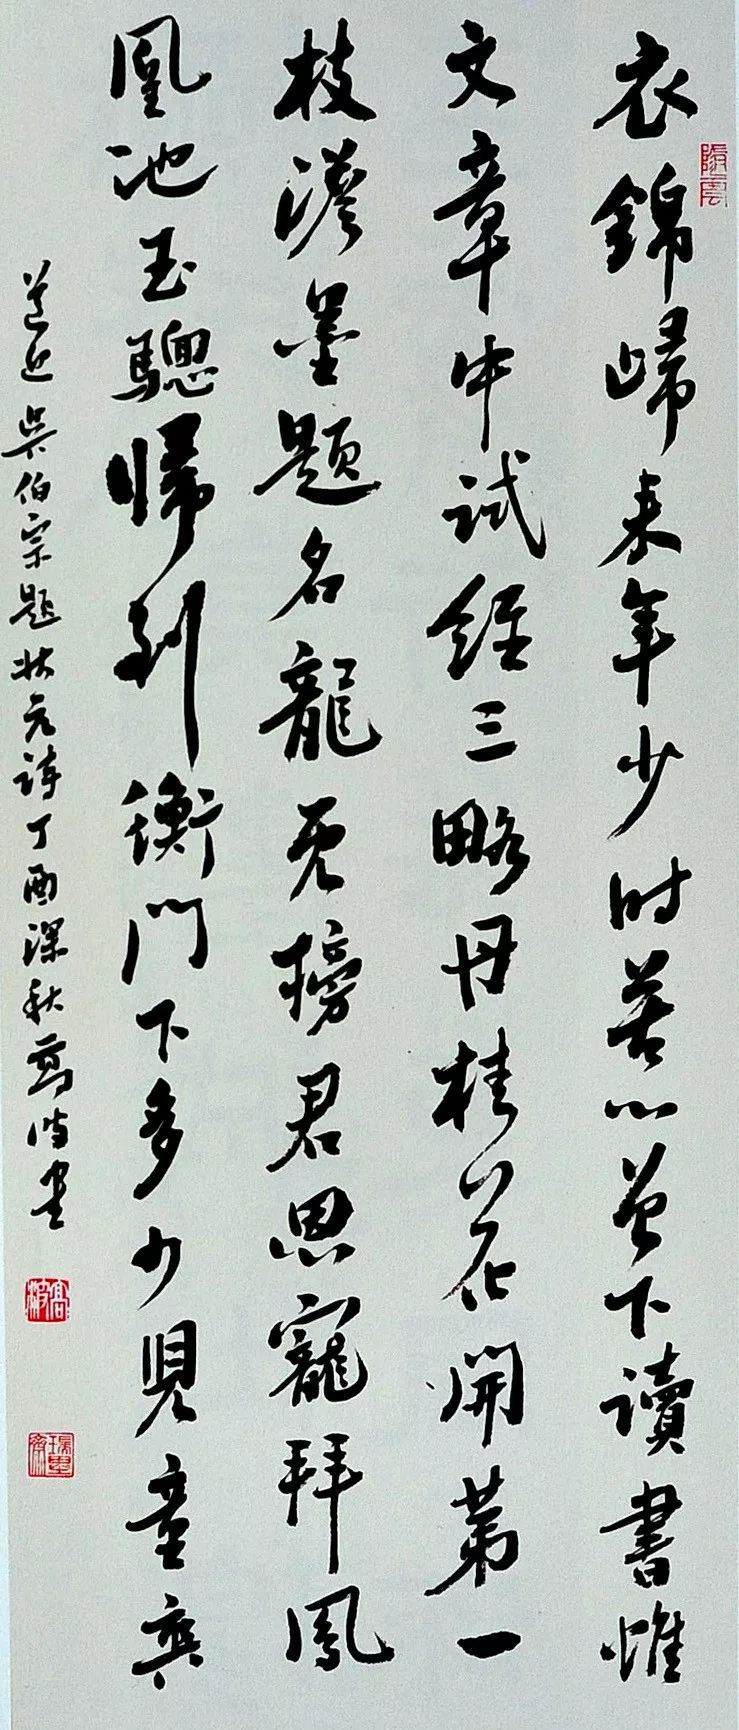 衣錦歸来年少时苦心窗下讀書帷
文章中試經三略丹桂花開第一
枝淡墨題名龍虎榜君恩寵拜鳳
凰池玉驄歸到衡門下多少兒童
道迟 吴伯宗題状元詩丁酉深秋高波書
高波